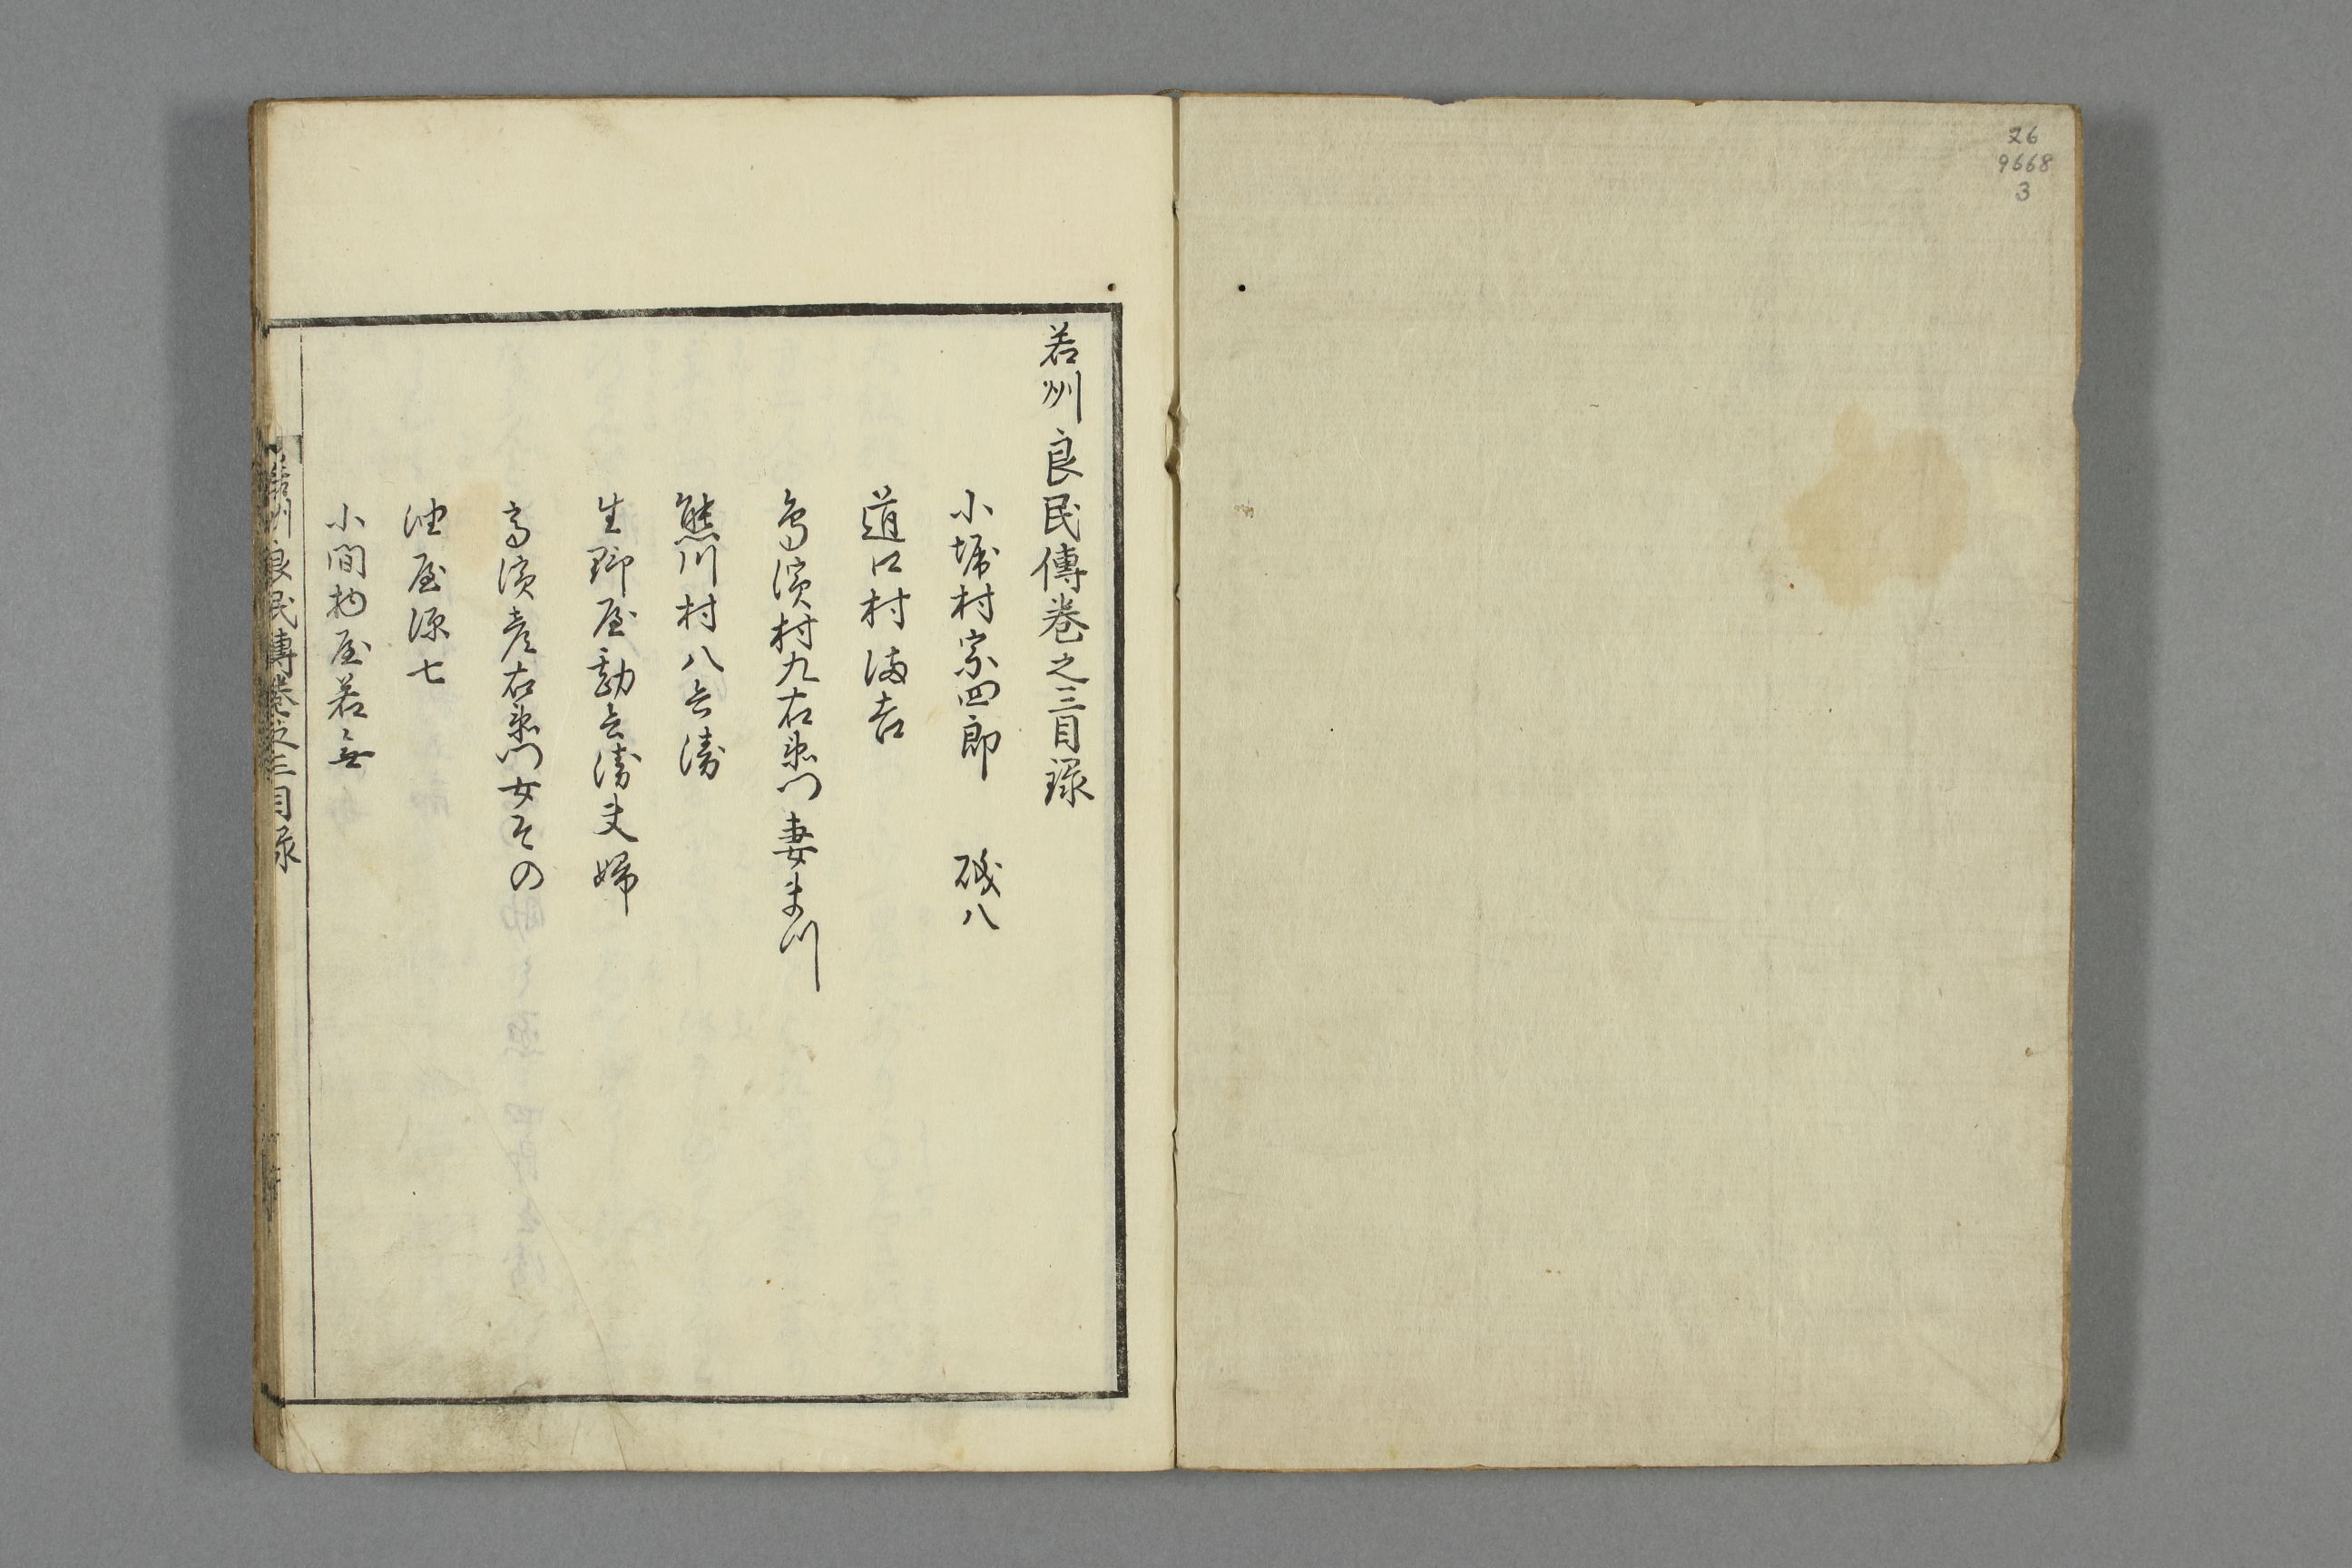 26
9668
3
若州良民傳巻之三目録
小堀村宗四郎 磯八
道口村満吉
高濱村九右衛門妻まり
熊川村八兵衛
生野屋勘兵衛夫婦
高濱彦右衛門女その
油屋源七
小間物屋若無
若州良民傳巻之三目录